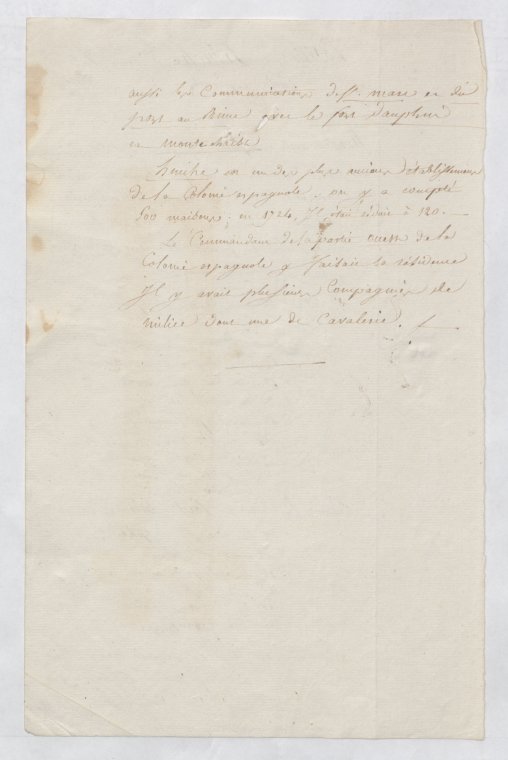 aussi les Communications de St. marc et du
port au Prince avec le fort dauphin
et monte Christ
hinche est un des plus anciens établissemens
de la Colonie espagnole, on y a compté
500 maisons; en 1724, Il était réduit à 120.
Le Commandant de la partie ouest de la
Colonie espagnole y faisait sa résidence
Il y avait plusieurs Compagnies de
milice dont une de Cavalerie.